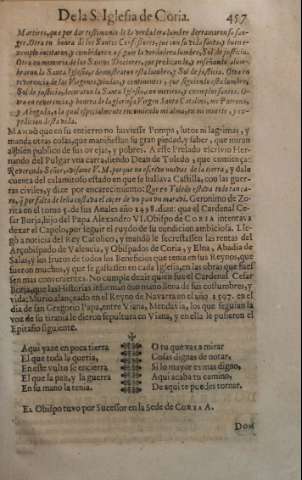 De la S. Iglesia de Coria. 457
Martires, que por dar testimonio de la verdadera lumbre derramaron su san-
gre. Otra en honra de los Santos Confessores, que con su vida santa, y buen e-
xemplo
Otra en memoria de los Santos Doctores, que predicando, y enseñando alum-
braron la Santa Iglesia, y demostraron esta lumbre, y Sol de justicia. Otra en
reverencia de las Virgenes, viudas, y continentes, que siguiendo esta lumbre,
Sol de justicia, honraron la Santa Iglesia, con meritos, y exemplos santos. O-
tra en reverencia, y honra de la gloriosa Virgen Santa Catalina, mi Patrona,
y Abogada, a la qual especialmente encomiendo mi alma, en mi muerte, y ex-
pedicion desta vida.
Mandò que en su entierro no huviesse Pompa, lutos ni lagrimas, y
manda otras cosas, que manifiestan su gran piedad, y saber, que miran
al bien publico de sus ovejas, y pobres. A este Prelado escrivio Her-
nando del Pulgar vna carta, siendo Dean de Toledo, que comença:
Reverendo Señor, deziame V. M. por que no os escrivo nuevas de la tierra, y dale
cuenta del calamitoso estado en que se hallava Castilla, con las guer-
ras civiles, y dize por encarecimiento: Que en Toledo estava todo tan ca-
ro, que por falta de leña costava el cocer de vn pan vn maravedi. Geronimo de Zo-
rita en el tomo 5. de sus Anales año 1498. dize: que el Cardenal Ce-
sar Borja, hijo del Papa Alexandro VI. Obispo de Coria intentava
dexar el Capelo, por seguir el ruydo de su condicion ambiciosa. Lle-
gò a noticia del Rey Catolico, y mandò le secrestassen las rentas del
Arçobispado de Valencia, y Obispados de Coria, y Elna, Abadia de
Salas, y los frutos de todos los Beneficios que tenia en sus Reynos, que
fueron muchos, y que se gastassen en cada Iglesia, en las obras que fues-
sen mas convenientes. No cumple dezir quien fue el Cardenal Cesar
Borja, que las Historias informan que mano llena de sus costumbres, y
vida; Murio alanceado en el Reyno de Navarra en el año 1507. en el
dia de san Gregorio Papa, entre Viana, Mendavia, los que seguian la
voz de su tirania le dieron sepultura en Viana, y en ella le pusieron el
Epitafio siguiente.
Aqui yaze en poca tierra
El que toda la queria,
En este vulto se encierra
El que la paz, y la guerra
En su mano la tenia.
O tu que vas a mirar
Cosas dignas de notar,
Si lo mayor es mas digno,
Aqui acaba tu camino,
De aqui te puedes tornar.
El Obispo tuvo por Sucessor en la Sede de Coria A.
Don